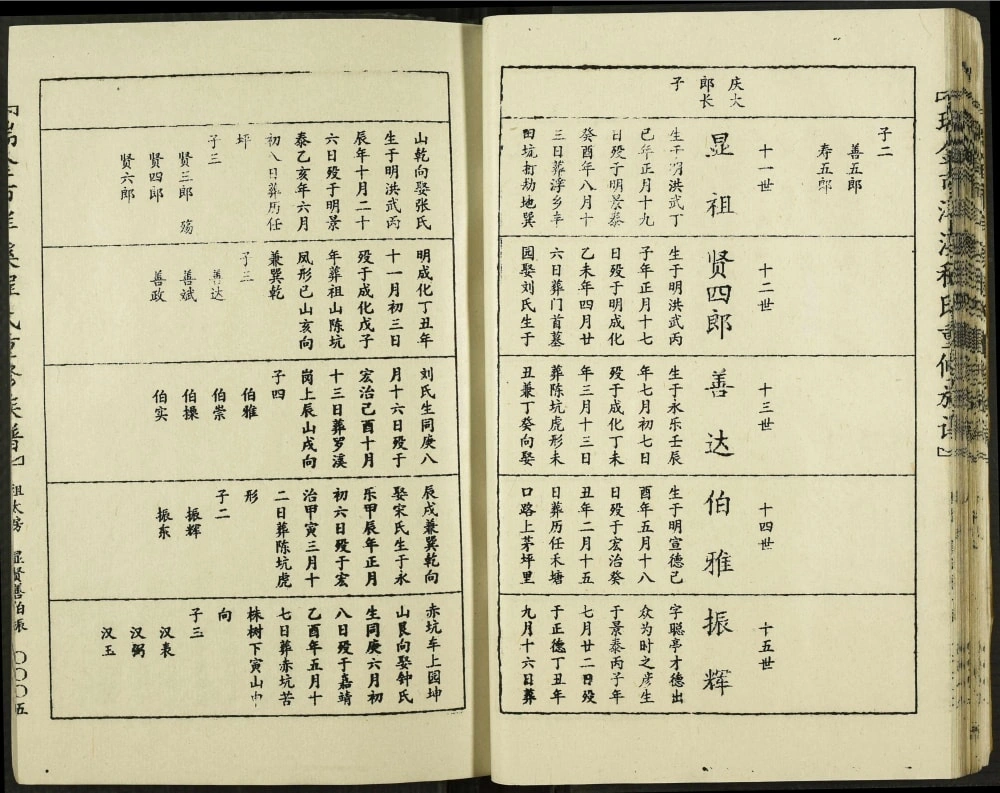 氏重修族谱』
庆大
郎长
子
子二
善五郎
寿五郎
十一世
显祖
生于明洪武丁
巳年正月十九
日殁于明景泰
癸酉年八月十
三日葬浮乡幸
田坑打劫地巽
十二世
贤四郎
生于明洪武丙
子年正月十七
日殁于明成化
乙未年四月廿
六日葬门首墓
园娶刘氏生于
十三世
善达
生于永乐壬辰
年七月初七日
殁于成化丁未
年三月十三日
葬陈坑虎形未
丑兼丁癸向娶
十四世
伯雅
生于明宣德己
酉年五月十八
日殁于宏治癸
丑年二月十五
日葬历任禾塘
口路上茅坪里
十五世
振辉
字聪亭才德出
众为时之彦生
于景泰丙子年
七月廿二日殁
于正德丁丑年
九月十六日葬
山乾向娶张氏
生于明洪武丙
辰年十月二十
六日殁于明景
泰乙亥年六月
初八日葬历任
坪
子三
贤三郎 殇
贤四郎
贤六郎
明成化丁丑年
十一月初三日
殁于成化戊子
年葬祖山陈坑
凤形巳山亥向
兼巽乾
子三
善达
善斌
善政
刘氏生同庚八
月十六日殁于
宏治己酉十月
十三日葬罗溪
岗上辰山戌向
子四
伯雅
伯崇
伯操
伯实
辰戌兼巽乾向
娶宋氏生于永
乐甲辰年正月
初六日殁于宏
治甲寅三月十
二日葬陈坑虎
形
子二
振辉
振东
赤坑车上园坤
山艮向娶钟氏
生同庚六月初
八日殁于嘉靖
乙酉年五月十
七日葬赤坑苦
株树下寅山申
向
子三
汉表
汉弼
汉玉
祖太房 显贤善伯振 〇〇〇五